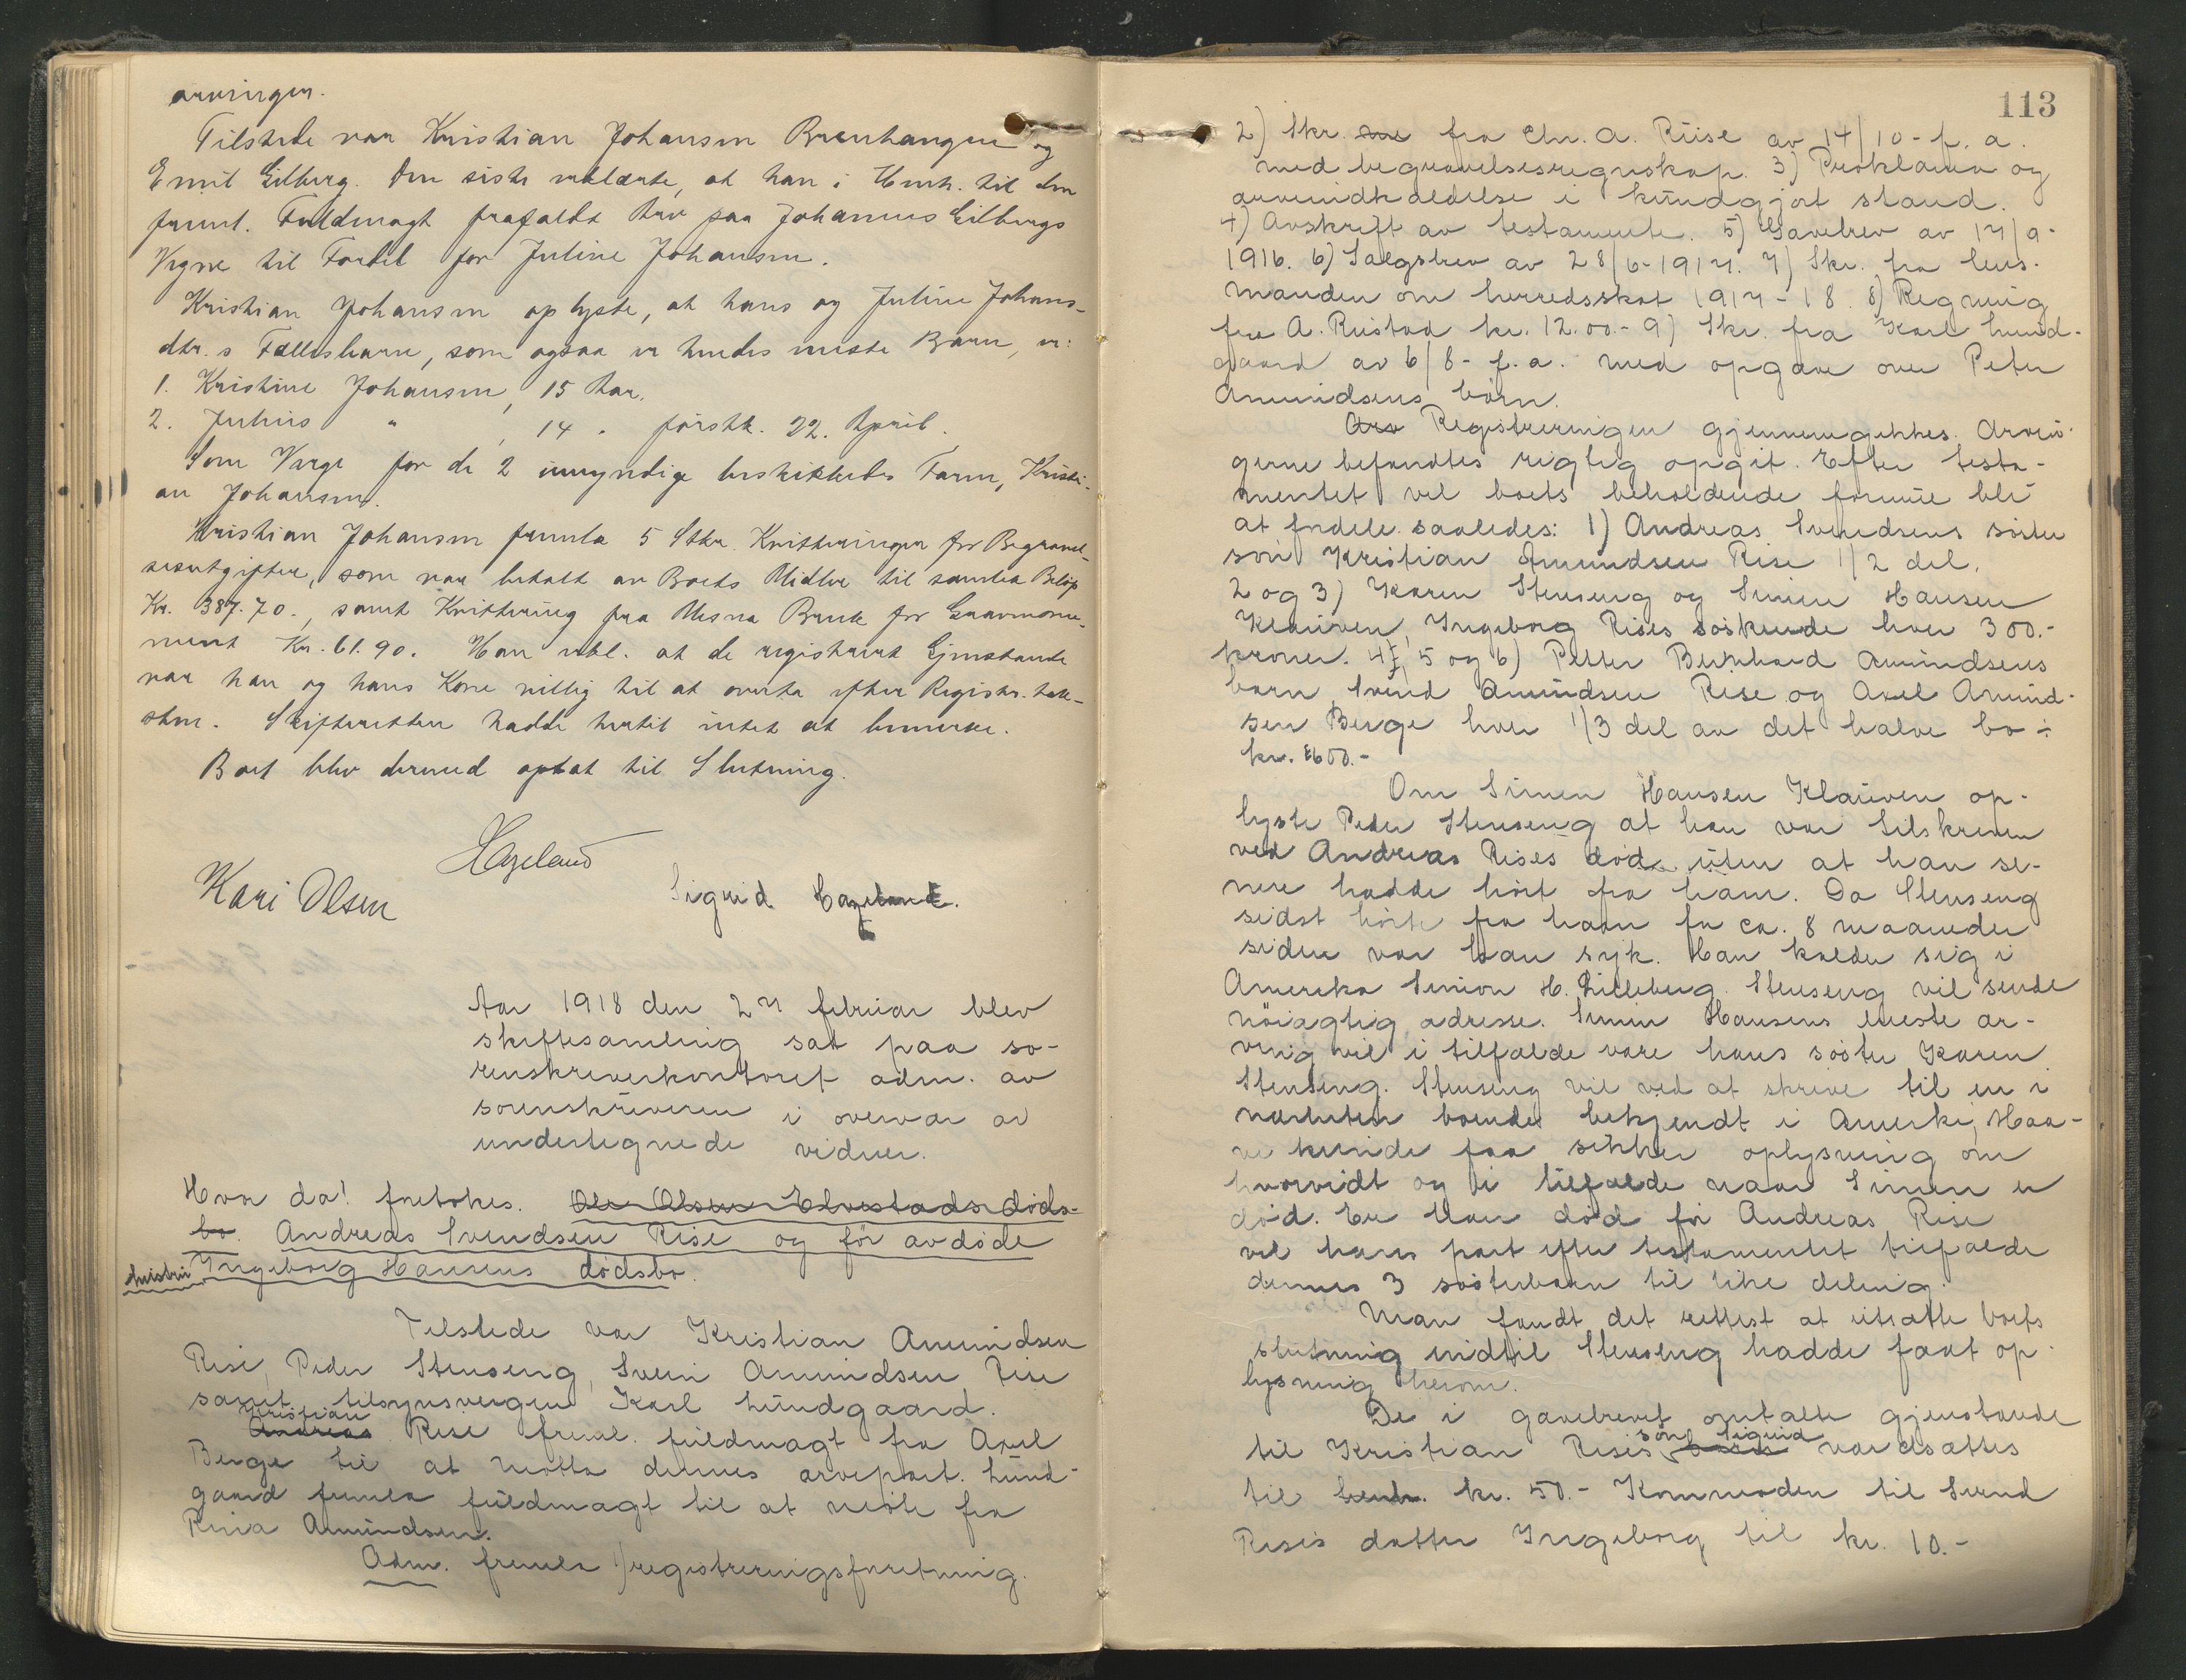 arvinger.
Tilstede var Kristian Johansen Brenhaugen og
Emil Eilberg. Den siste erklærte, at han i Henh. til den
fremt. Fuldmagt frafaldt Arv paa Johannes Eilbergs
Vegne til Fordel for Juline Johansen.
Kristian Johansen oplyste, at hans og Juline Johans-
dtr.s Fællesbarn, som ogsaa er hendes eneste Barn, er:
1. Kristine Johansen, 15 Aar.
2. Julius " , 14 " førstk. 22. April.
Som Verge for de 2 umyndige beskikkedes Faren, Kristi-
an Johansen.
Kristian Johansen fremla 5 Stkr. Kvitteringer for Begravel-
sesutgifter, som var betalt av Boets Midler til samlet Beløp
Kr. 387.70., samt Kvittering fra Mesna Bruk for Gravmonu-
ment Kr. 61.90. Han erkl. at de registrert Gjenstande
var han og hans Kone villig til at overta efter Registr. tak-
sten. Skifteretten hadde hertil intet at bemerke.
Boet blev dermed optat til Slutning.
Hageland
Kari Olsen
Sigrid Hageland.
Aar 1918 den 27 februar blev
skiftesamling sat paa so-
renskriverkontoret adm. av
sorenskriveren i overvær av
undertegnede vidner.
Hvor da! foretokes. Ole Olsen Elvestads døds-
bo. Andreas Svendsen Rise og før avdøde
hustru Ingeborg Hansens dødsbo.
Tilstede var Kristian Amundsen
Rise, Peder Stenseng, Svein Amundsen Rise
samt tilsynsvergen Karl Lundgaard.
Kristian
Andreas Rise freml. fuldmagt fra Axel
Berge til at motta dennes arvepart. Lund-
gaard fremla fuldmagt til at møte fra
Amundsen.
Adm. fremla 1) registreringsforretning.
113
2) Skr. fra Chr. A. Riise av 14/10 - f. a.
med begravelsesregnskap. 3) Proklama og
arveindkaldelse i kundgjort stand.
4) Avskrift av testamente. 5) Gavebrev av 17/9-
1916. 6) Salgsbrev av 28/6-1917. 7) Skr. fra lens-
manden om herredsskat 1917-18. 8) Regning
fra A. Rustad kr. 12.00.- 9) Skr. fra Karl Lund-
gaard av 6/8- f. a. med opgave over Peter
Amundsens børn.
Arv Registreringen gjennemgikkes. Arvin-
gerne befandtes rigtig opgit. Efter testa-
mentet vil boets beholdende formue bli
at fordele saaledes: 1) Andreas Svendsens søster
søn Kristian Amundsen Rise 1/2 del.
2 og 3) Karen Stenseng og Simen Hansen
Klauven, Ingeborg Rises søskende hver 300.-
kroner. 4, 5 og 6) Petter Bernhard Amundsens
barn Svend Amundsen Rise og Axel Amund-
sen Berge hver 1/3 del av det halve bo ÷
kr. 600.-
Om Simen Hansen Klauven op-
lyste Peder Stenseng at han var tilskreven
ved Andreas Rises død uten at han se-
nere hadde hørt fra ham. Da Stenseng
sidst hørte fra ham for ca. 8 maaneder
siden var han syk. Han kalder sig i
Amerika Simon H. Lilleberg. Stenseng vil sende
nøiagtig adresse. Simen Hansens eneste ar-
ving vil i tilfælde være hans søster Karen
Stenseng. Stenseng vil ved at skrive til en i
nærheten boende bekjendt i Amerika, Haa-
ve kunde faa sikker oplysning om
hvorvidt og i tilfælde naar Simen er
død. Er han død før Andreas Rise
vil hans part efter testamentet tilfalde
dennes 3 søsterbarn til like deling.
Man fandt det rettest at utsætte boets
slutning indtil Stenseng hadde faat op-
lysning herom.
De i gavebrevet omtalte gjenstande
søn Sigurd
til Kristian Rises værdsættes
til kr. 50.- Kommoden til Svend
Rises datter Ingeborg til kr. 10.-